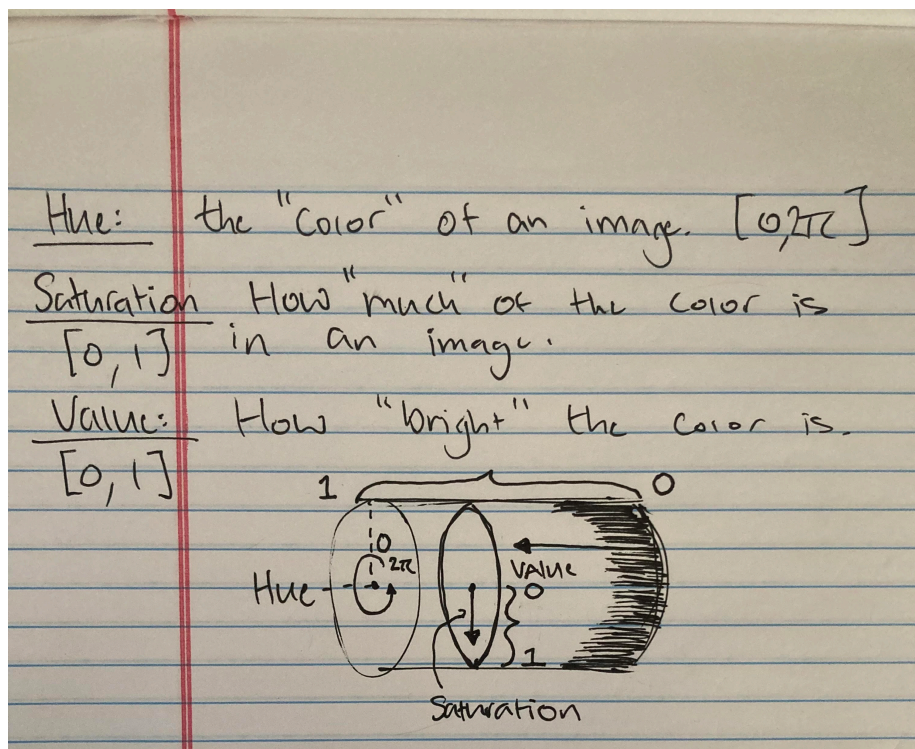 Hue: the "color" of an image. [0,2π]
Saturation How "much" of the color is
[0, 1] in an image.
Value: How "bright" the color is.
[0, 1]
1 0
0
2π
Hue
VALUE
0
1
Saturation